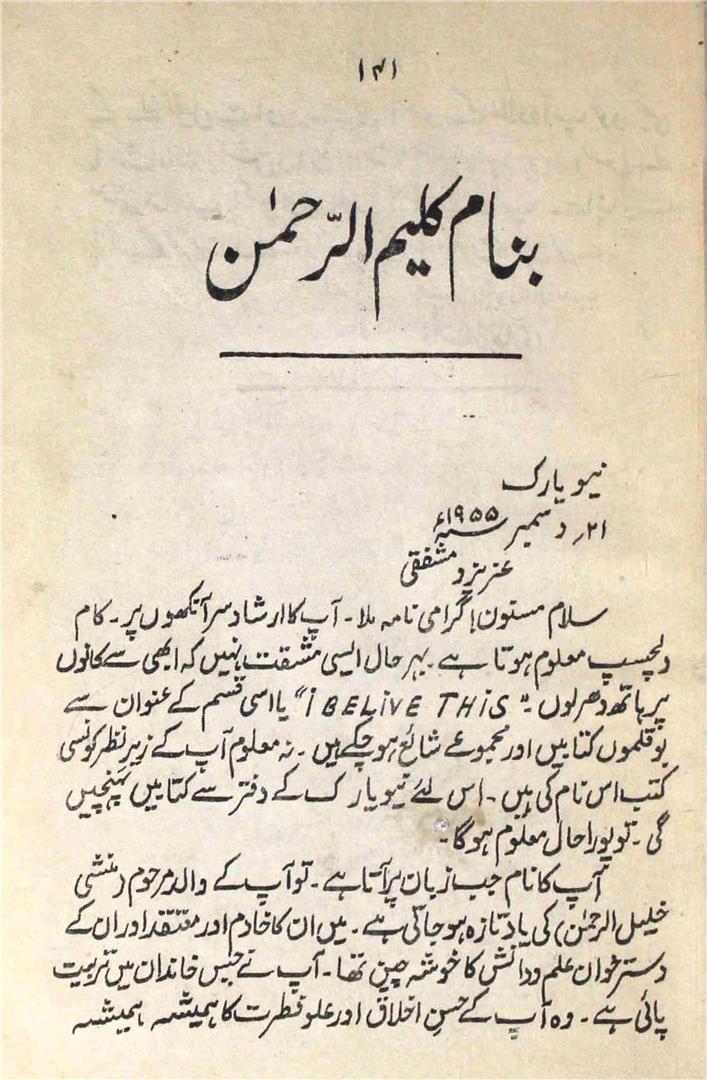 ۱۴۱
بنام کلیم الرّحمٰن
نیو یارک
۲۱ر دسمبر ۱۹۵۵ء
عزیزد مشفقی
سلام مسنون! گرامی نامہ ملا۔ آپ کا ارشاد سر آنکھوں پر۔ کام
دلچسپ معلوم ہوتا ہے۔ بہر حال ایسی مشقت نہیں کہ ابھی سے کانوں
پر ہاتھ دھر لوں۔ "i BELiVE THiS" یا اسی قسم کے عنوان سے
بو قلموں کتابیں اور مجموعے شائع ہو چکے ہیں۔ نہ معلوم آپ کے زیرِ نظر کونسی
کتب اس نام کی ہیں۔ اس لئے نیو یارک کے دفتر سے کتابیں پہنچیں
گی۔ تو پورا حال معلوم ہو گا۔
آپ کا نام جب زبان پر آتا ہے۔ تو آپ کے والد مرحوم (منشی
خلیل الرحمٰن) کی یاد تازہ ہو جاتی ہے۔ میں ان کا خادم اور معتقد اور ان کے
دستر خوان علم و دانش کا خوشہ چین تھا۔ آپ نے جس خاندان میں تربیت
پائی ہے۔ وہ آپ کے حسنِ اخلاق اور علو فطرت کا ہمیشہ ہمیشہ